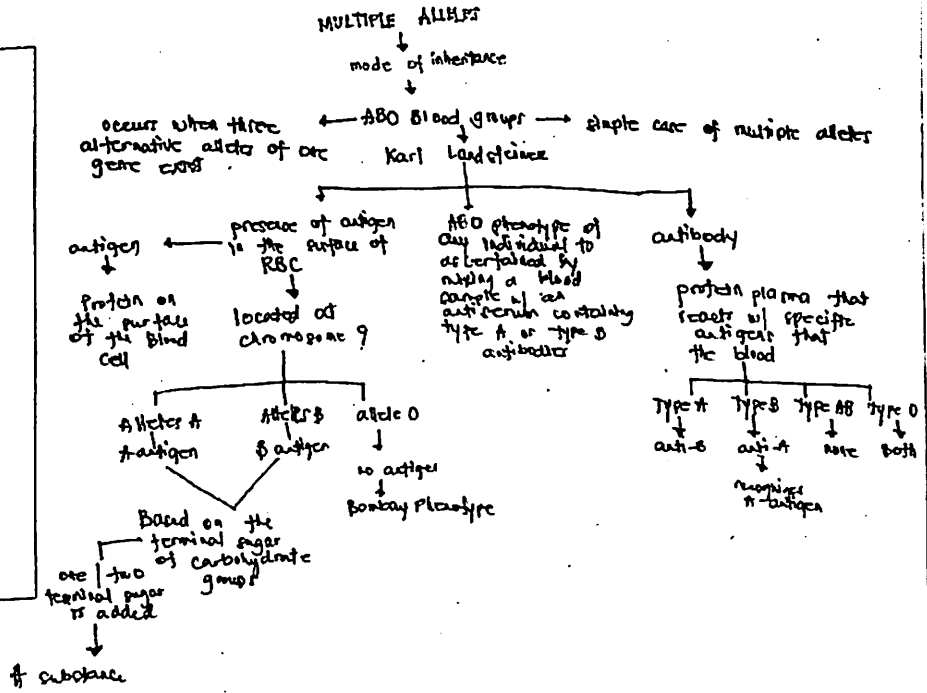 MULTIPLE ALLELES
mode of inheritance
ABO Blood groups
occurs when three
alternative alleles of one
gene exist
simple case of multiple alleles
Karl Landsteiner
presence of antigen
in the surface of
RBC
antigen
protein on
the surface
of the blood
cell
located at
chromosome 9
Alleles A
A antigen
Alleles B
B antigen
allele O
no antigen
Bombay Phenotype
Based on the
terminal sugar
of carbohydrate
groups
one two
terminal sugar
is added
substance
ABO phenotype of
any individual to
ascertained by
mixing a blood
sample w/ an
antiserum containing
type A or type B
antibodies
antibody
protein plasma that
reacts w/ specific
antigens that
the blood
Type A
anti-B
Type B
anti-A
recognizes
A-antigen
Type AB
none
Type O
Both